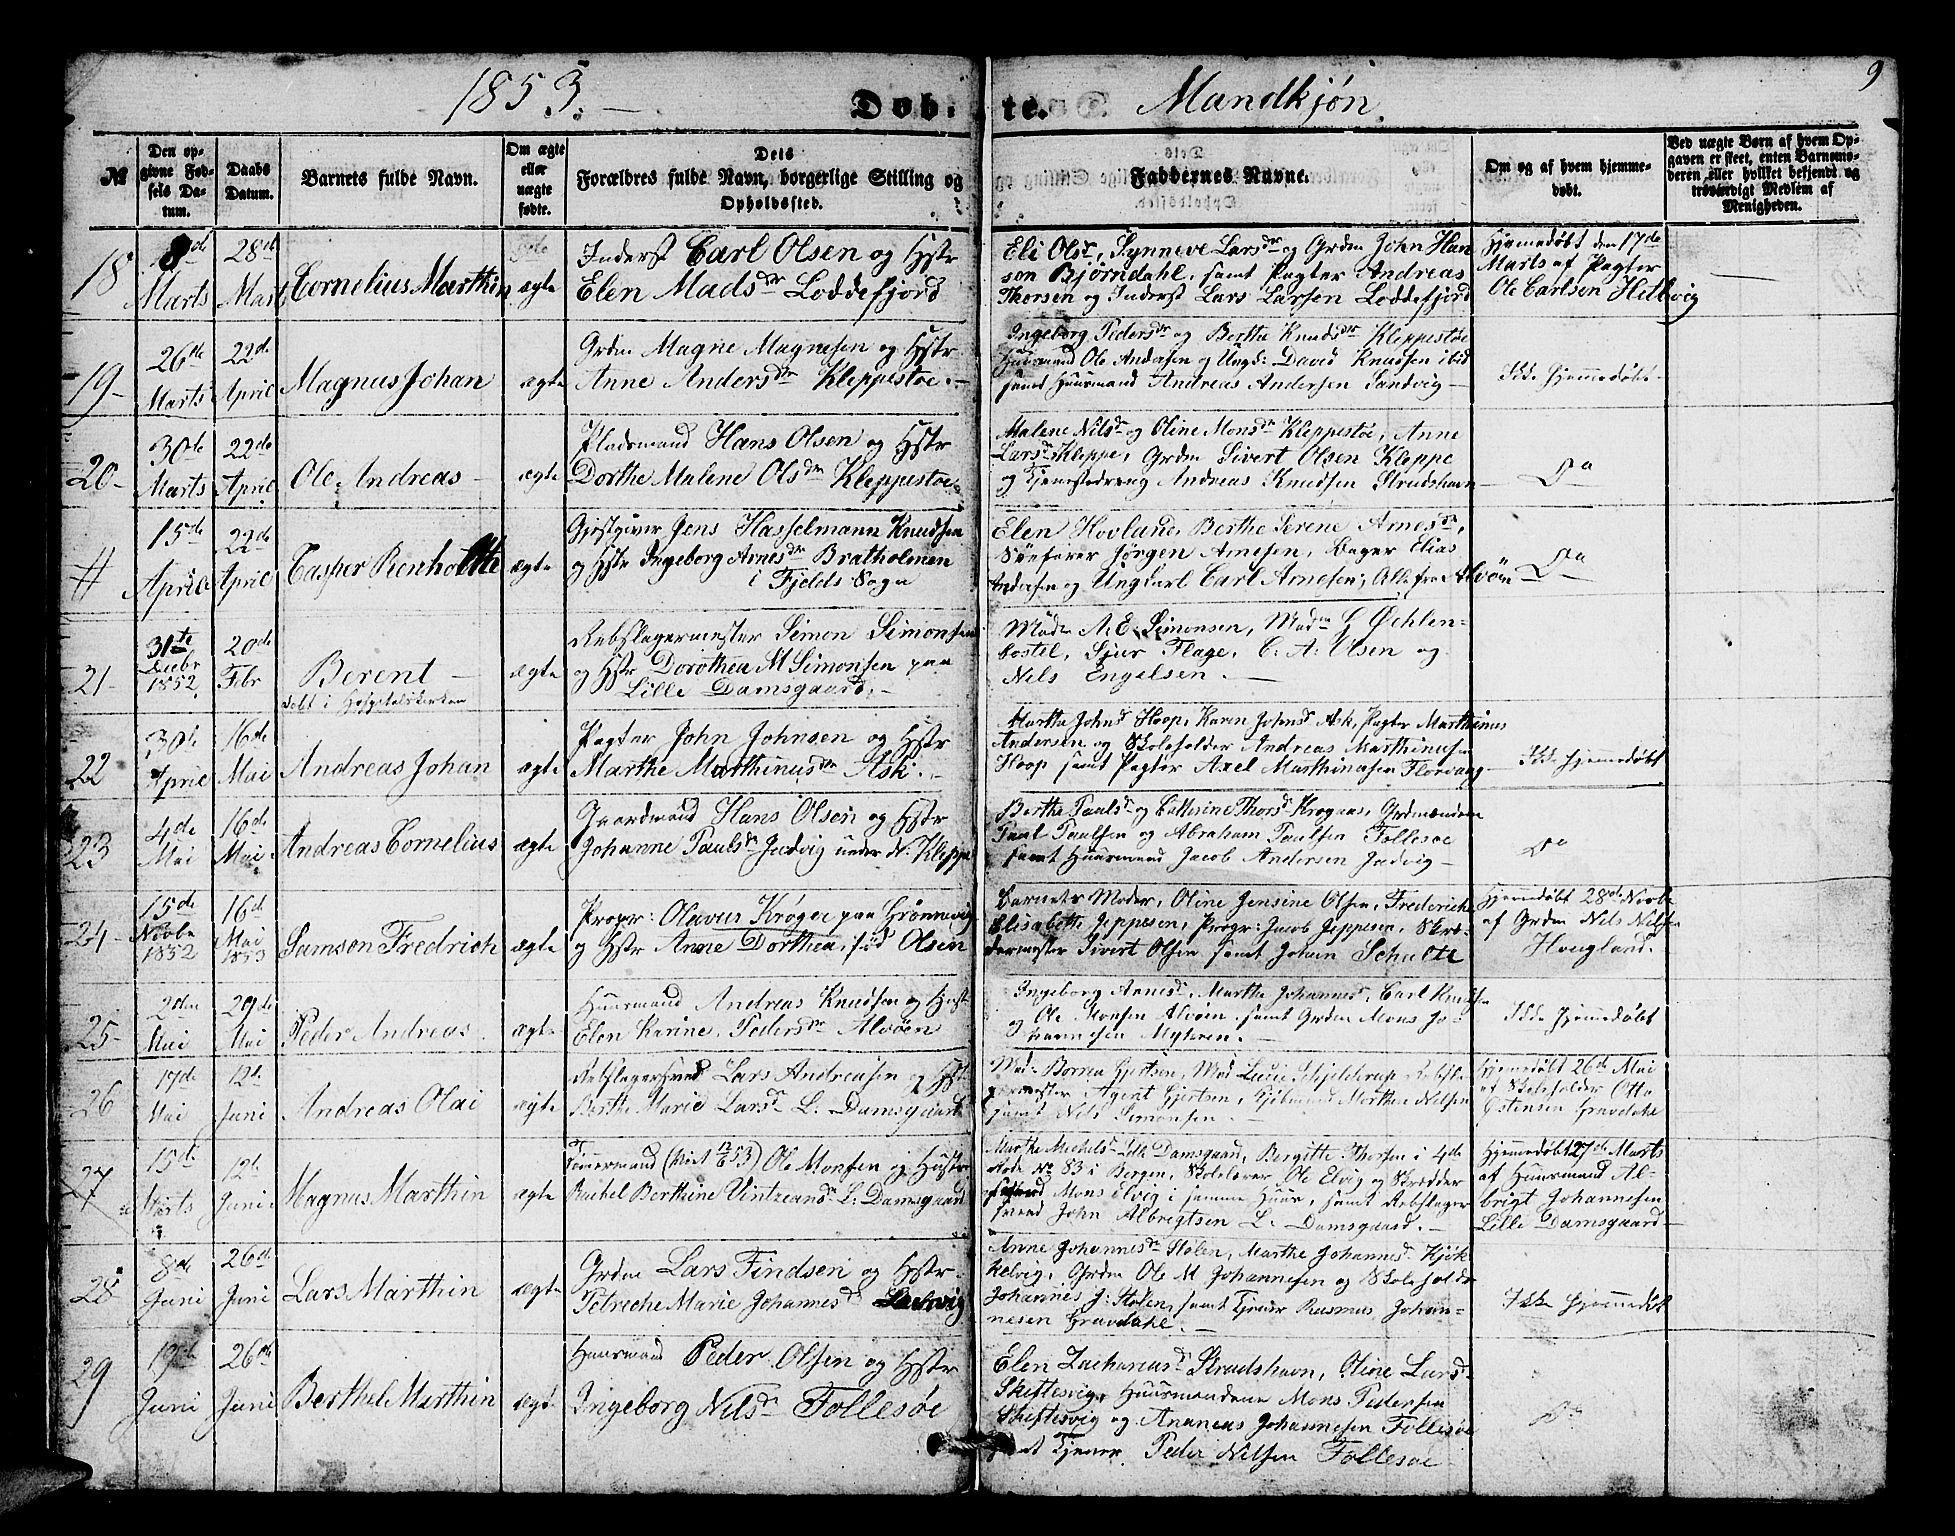 1853.
Døbte. Mandkjøn
9
№
Den opgivne Fødsels Datum.
Daabs Datum.
Barnets fulde Navn.
Om ægte eller uægte fødte.
Dets Forældres fulde Navn, borgerlige Stilling og Opholdssted.
Faddernes Navne.
Om og af hvem hjemmedøbt.
Ved uægte Børn af hvem Opgaven er skeet, enten Barnemoderen eller hvilket bekjendt og troværdigt Medlem af Menigheden.
18
8d Marts
28d Marts
Cornelius Marthin
ægte
Inderst Carl Olsen og Hstr
Elen Madsdr Loddefjord
Eli Olsd, Synneve Larsdr og Grdm John Han
sen Bjørndahl, samt Pagter Andreas
Thorsen og Inderst Lars Larsen Loddefjord
Hjemmedøbt den 17de
Marts af Pagter
Ole Carlsen Hetlevig
19
26de Marts
22de April
Magnus Johan
ægte
Grdm Magne Magnesen og Hstr
Anne Andersdr Kleppestøe.
Ingeborg Pedersdr og Berthe Knudsdr Kleppestøe
Huusmand Ole Andersen og Ungk: David Knudsen ibid
samt Huusmand Andreas Andersen Sandvig
Ikke hjemmedøbt
20
30te Marts
22de April
Ole Andreas
ægte
Pladsmand Hans Olsen og Hstr
Dorthe Malene Olsdr Kleppestøe
Malene Nilsdr og Oline Monsdr Kleppestøe, Anne
Larsdr Kleppe, Grdm Sivert Olsen Kleppe
og Tjenestedreng Andreas Knudsen Strudshavn
Do
#
15de April
22de April
Casper Rienholdt
ægte
Gjestgiver Jens Hasselmann Knudsen
og Hstr Ingeborg Arnesdr Bratholmen
i Fjelds Sogn
Elen Hovland, Berthe Serene Arnesdr,
Søefarer Jørgen Arnesen, Bager Elias
Andersen og Ungkarl Carl Arnesen; Alle fra Alvøen
Do
21
31te Decbr 1852
20de Febr
Berent
døbt i Hospitalskirken
ægte
Rebslagermester Simon Simonsen
og Hstr Dorothea M Simonsen paa
Lille Damsgaard.
Mad: A. E. Simonsen, Madm G Øchlen-
bostel, Sjur Flage, C. A. Olsen og
Nils Engelsen.
22
30te April
16de Mai
Andreas Johan
ægte
Pagter John Johnsen og Hstr
Marthe Marthinusdr Ask.
Marthe Johnsd Hoop, Karen Johnsd Ask, Pagter Marthinus
Andersen og Skoleholder Andreas Marthinusen
Hoop samt Pagter Axel Marthinusen Florvaag
Ikke hjemmedøbt
23
4de Mai
16de Mai
Andreas Cornelius
ægte
Gaardmand Hans Olsen og Hstr
Johanne Paulsdr Judvig under N. Kleppe
Berthe Paulsdr og Cathrine Thorsd Krogaas, Grdmændene
Paul Paulsen og Abraham Paulsen Follesøe
samt Huusmand Jacob Andersen Judvig
Do
24
15de Novbr 1852
16de Mai 1853
Samson Fredrich
ægte
Propr: Olavus Krøger paa Grønnevig
og Hstr Anne Dorthea, fød Olsen
Barnets Moder, Oline Jensine Olsen, Frederiche
Elisabeth Jeppesen, Propr: Jacob Jeppesen, Skræ-
dermester Sivert Olsen samt Johan Schulte
Hjemmedøbt 28de Novbr
af Grdm Nils Nilsen
Hougland.
25
2den Mai
29de Mai
Peder Andreas
ægte
Huusmand Andreas Knudsen og Hustr
Elen Karine Pedersdr Alvøen
Ingeborg Arnesd, Marthe Johannesd, Carl Knudsen
og Ole Monsen Alvøen samt Grdm Mons Jo-
hannesen Myhren.
Ikke hjemmedøbt
26
17de Mai
12te Juni
Andreas Olai
ægte
Rebslagersvend Lars Andreasen og Hstr
Berthe Marie Larsdr L. Damsgaard
Mad: Borrea Gjertsen, Mad Lucie Schjelderup, Rebsla-
germester Agent Gjertsen, Kjøbmand Morthen Nilsen
samt Nils Simonsen
Hjemmedøbt 26de Mai
af Skoleholder Otto
Østensen Gravdahl
27
15de Marts
12te Juni
Magnus Marthin
ægte
Tømmermand Ole Monsen og Hustr
Rachel Berthine Vintzeandr L. Damsgaard
Marthe Michelsd Lille Damsgaard, Bergitte Thorsen i 4de
Rode No 83 i Bergen, Skolelærer Ole Elvig og Skrædder
svend Mons Elvig i samme Huus, samt Rebslager
svend John Albregtsen L. Damsgaard.
Hjemmedøbt 27de Marts
af Huusmand Al-
brigt Johannesen
Lille Damsgaard
28
8de Juni
26de Juni
Lars Marthin
ægte
Grdm Lars Findsen og Hstr
Petreche Marie Johannesd
Anne Johannesdr Stølen, Marthe Johannesd Kjøk-
kelvig, Grdm Ole M Johannesen og Skoleholder
Johannes J. Stølen, samt Tjener Rasmus Johan-
nesen Gravdahl.
Ikke hjemmedøbt
29
19de Juni
26de Juni
Berthel Marthin
ægte
Huusmand Peder Olsen og Hstr
Ingeborg Nilsdr Follesøe
Elen Zachariasd Strudshavn, Oline Larsd
Skiftesvig, Huusmændene Mons Pedersen
Skiftesvig og Ananias Johannesen Follesøe
samt Tjener Peder Nilsen Follesøe
Do